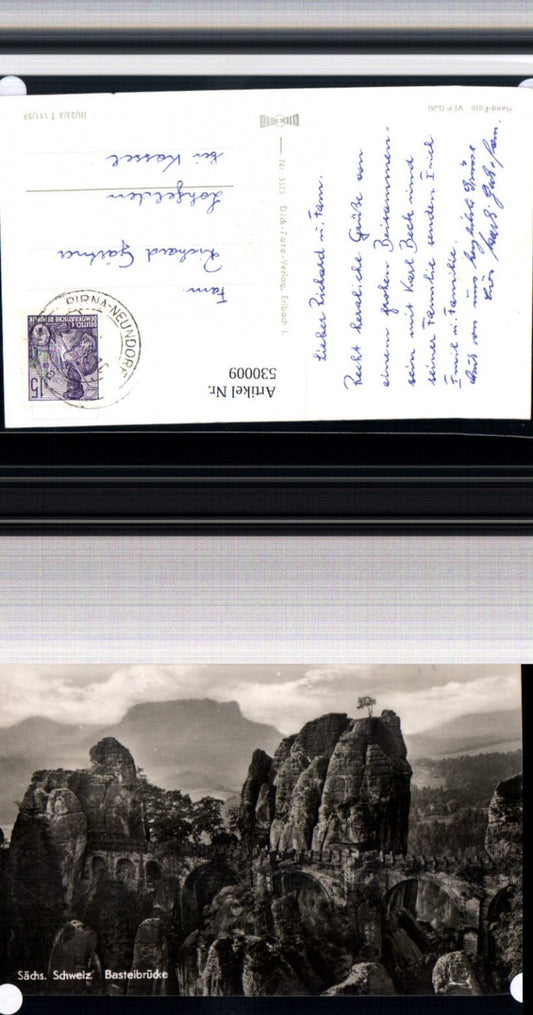 Hand-Foto VEP 0,20
III/23/3 T 111/59
DICK FOTO
Lieber Richard u. Fam.
Recht herzliche Grüße von
einem frohen Beisammen-
sein mit Karl Beck und
seiner Familie senden Emil
Emil u. Familie.
Auch von uns herzliche Grüße
Fam.
Richard Gärtner
Lohfelden
bei Kassel
Dick-Foto-Verlag, Erlbach i.
PIRNA-NEUNDORF
DEUTSCHE
DEMOKRATISCHE REPUBLIK
15
Artikel Nr.
530009
Sächs. Schweiz. Basteibrücke